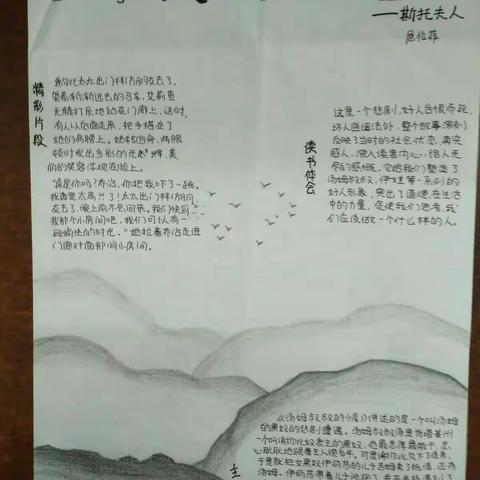 ——斯托夫人
精彩片段
谢尔比太太出门拜访朋友去了，
望着渐渐远去的马车，艾莉查
无精打采地站在门廊上，这时，
有人从后面走来，把手搭在了
她的肩膀上。她转过身，两眼
顿时发出多彩的光
丽的笑容浮现在脸上。
"真是你吗？乔治，你把我吓了一跳。
我真是太高兴了！太太出门拜访朋友
去了，晚上前不会回来。我们快到
我那个小房间吧，我们可以有一
段愉快的时光。"她拉着乔治走进
门廊对面那间小房间。
读书体会
这是一个悲剧，好人含恨而死，
坏人逍遥法外，整个故事深刻
反映了当时的社会状态，真实
感人，深入读者内心，给人无
尽的感慨。它给我们塑造了
汤姆叔叔，伊娃等一系列的
好人形象，突出了道德在生活
中的力量，促使我们思考，我
们应该做一个什么样的人。
主
《汤姆叔叔的小屋》讲述的是一个叫汤姆
的黑奴的悲剧遭遇。汤姆叔叔原是肯塔基州
一个叫谢尔比奴隶主的黑奴，他最忠厚
心耿耿地跟着主人很多年。可是谢尔比欠下了债务，
于是就把女黑奴伊丽莎的儿子
汤姆，伊丽莎带着儿子逃跑了